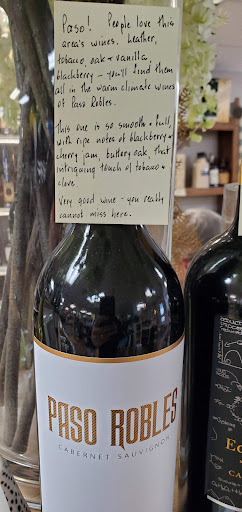 Paso! People love this
area's wines. Leather,
tobacco, oak + vanilla,
blackberry - you'll find them
all in the warm climate wines
of Paso Robles.
This one is so smooth + full,
with ripe notes of blackberry +
cherry jam, buttery oak, that
intriguing touch of tobacco +
clove.
Very good wine - you really
cannot miss here.
PASO ROBLES
CABERNET SAUVIGNON